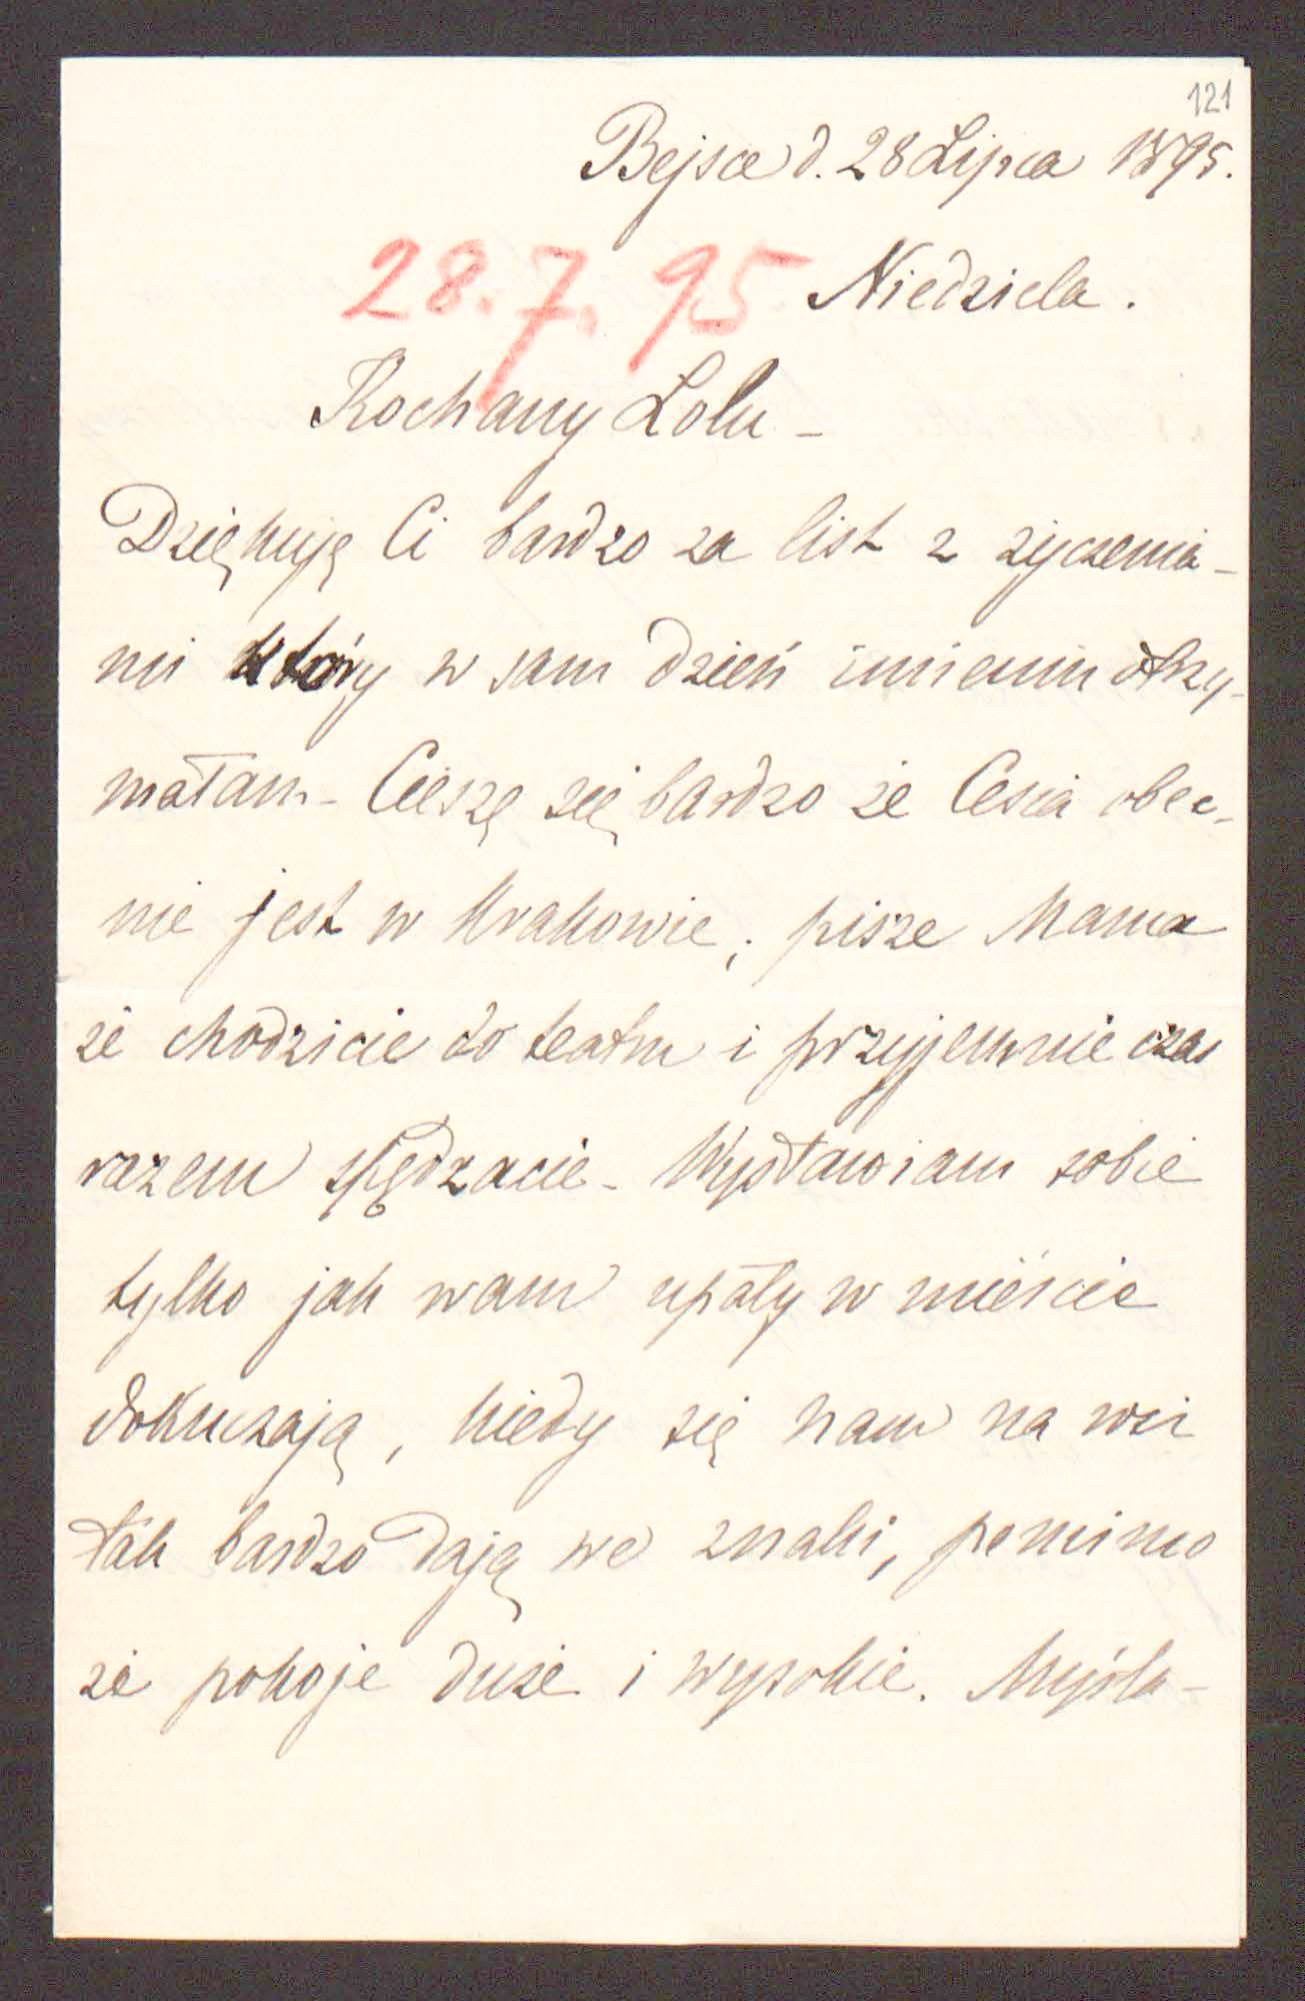 121
Bejsce d. 28 Lipca 1895.
28.7.95 Niedziela.
Kochany Lolu -
Dziękuję Ci bardzo za list z życzenia-
mi który w sam dzień imienin otrzy-
małam - Cieszę się bardzo że Cesia obec-
nie jest w Krakowie, pisze Mama
że chodzicie do teatru i przyjemnie czas
razem spędzacie - Wystawiam sobie
tylko jak wam upały w mieście
dokuczają, kiedy się nam na wsi
tak bardzo dają we znaki, pomimo
że pokoje duże i wysokie. Myśla-